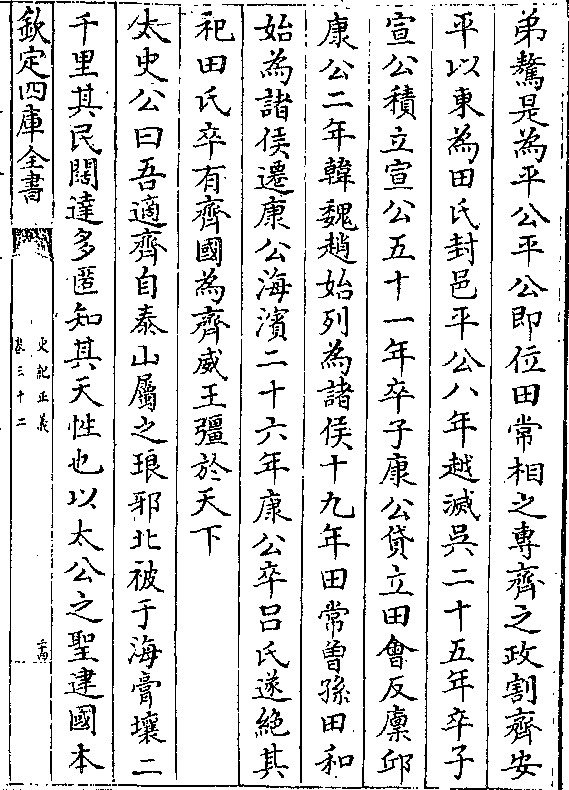 弟驁是為平公平公即位田常相之專齊之政割齊安
平以東為田氏封邑平公八年越滅吳二十五年卒子
宣公積立宣公五十一年卒子康公貸立田會反廪邱
康公二年韓魏趙始列為諸侯十九年田常曽孫田和
始為諸侯遷康公海濱二十六年康公卒吕氏遂絶其
祀田氏卒有齊國為齊威王彊於天下
太史公曰吾適齊自泰山屬之琅邪北被于海膏壤二
千里其民闊達多匿知其天性也以太公之聖建國本
欽定四庫全書
史記正義
卷三十二